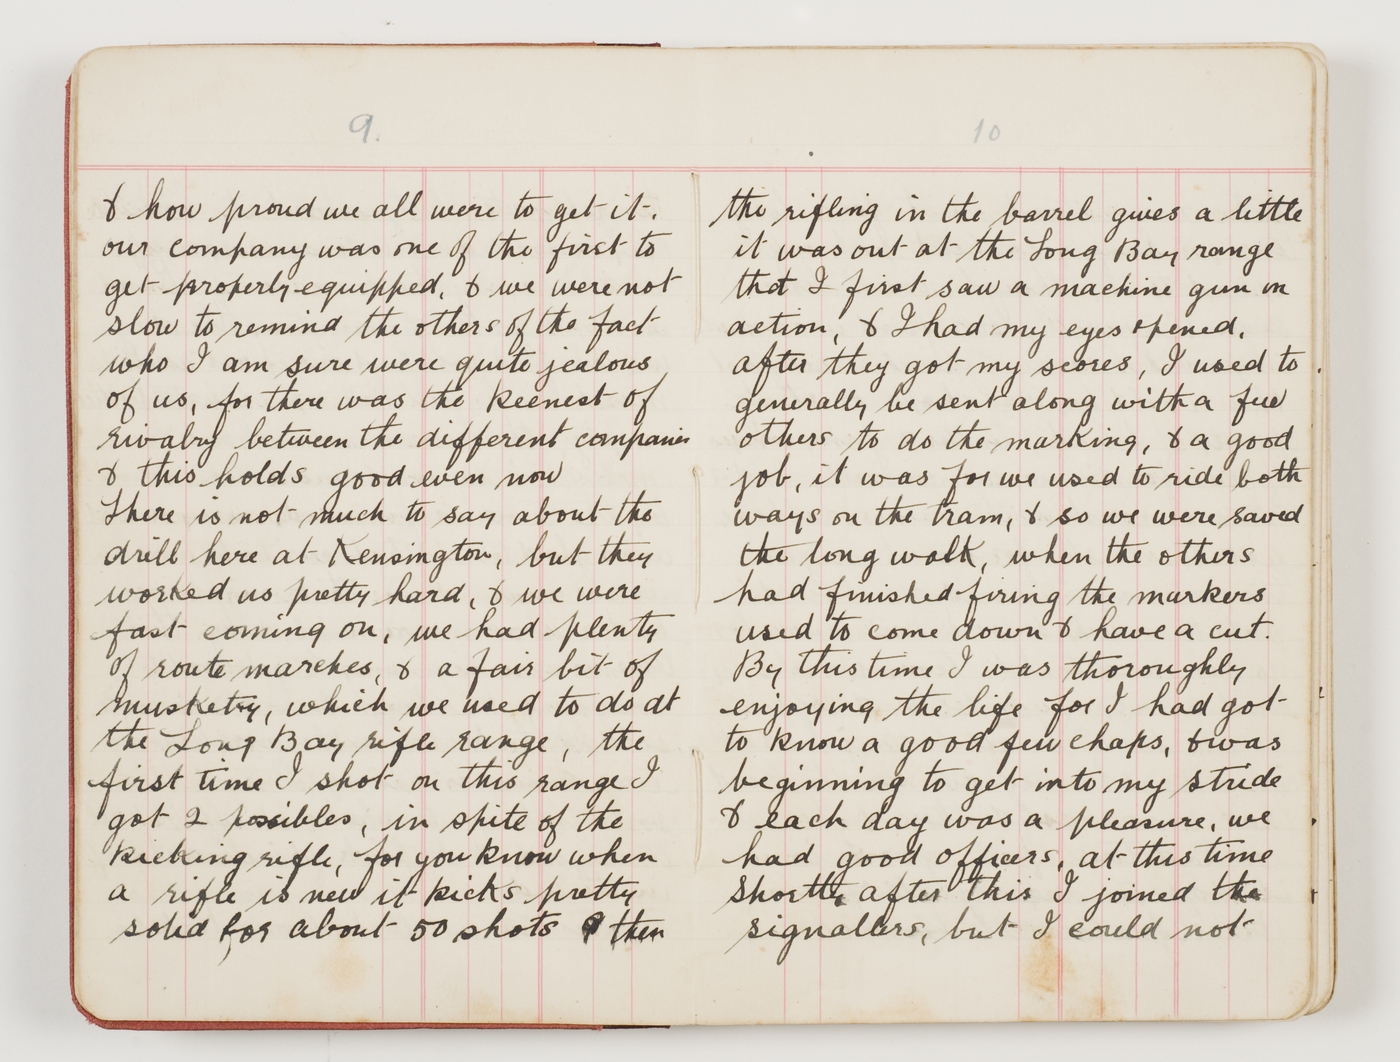 9.
& how proud we all were to get it.
our company was one of the first to
get properly equipped, & we were not
slow to remind the others of the fact
who I am sure were quite jealous
of us, for there was the keenest of
rivalry between the different companies
& this holds good even now
There is not much to say about the
drill here at Kensington, but they
worked us pretty hard, & we were
fast coming on, we had plenty
of route marches, & a fair bit of
musketry, which we used to do at
the Long Bay rifle range, the
first time I shot on this range I
got 2 possibles, in spite of the
kicking rifle, for you know when
a rifle is new it kicks pretty
solid for about 50 shots & then
10
the rifling in the barrel gives a little
it was out at the Long Bay range
that I first saw a machine gun in
action, & I had my eyes opened,
after they got my scores, I used to
generally be sent along with a few
others to do the marking, & a good
job, it was for we used to ride both
ways on the tram, & so we were saved
the long walk, when the others
had finished firing the markers
used to come down & have a cut.
By this time I was thoroughly
enjoying the life for I had got
to know a good few chaps, & was
beginning to get into my stride
& each day was a pleasure, we
had good officers, at this time
shortly after this I joined the
signallers, but I could not